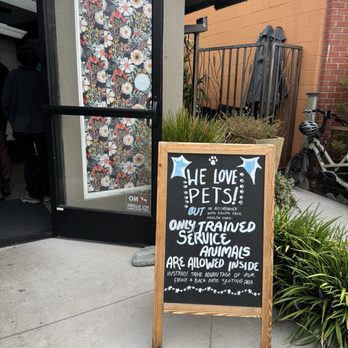 WE LOVE
PETS!
BUT
IN ACCORDANCE
WITH SANTA CRUZ
HEALTH CODE:
ONLY TRAINED
SERVICE
ANIMALS
ARE ALLOWED INSIDE
INSTEAD! TAKE ADVANTAGE OF OUR
FRONT & BACK PATIO SEATING AREA
NO